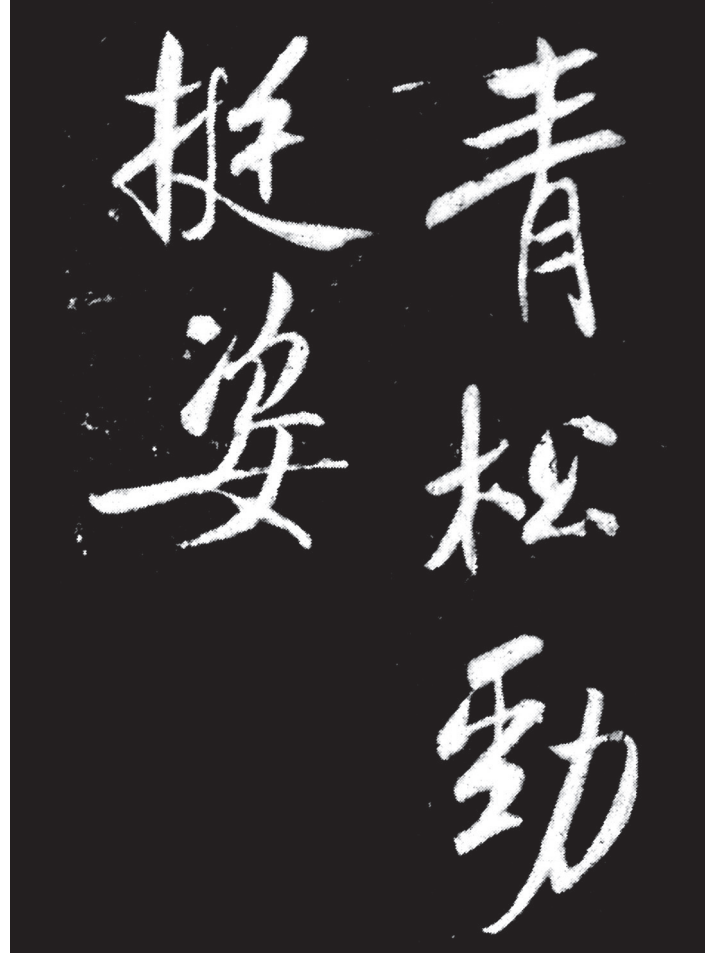 青松勁
挺姿